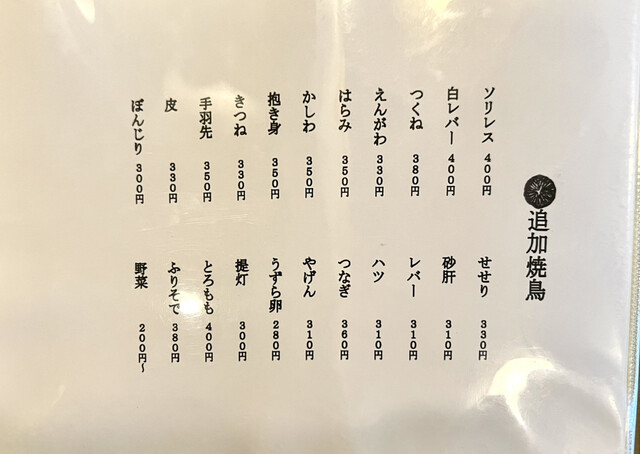 追加焼鳥
ソリレス 400円
白レバー 400円
つくね 380円
えんがわ 330円
はらみ 350円
かしわ 350円
抱き身 350円
きつね 330円
手羽先 350円
皮 330円
ぼんじり 300円
せせり 330円
砂肝 310円
レバー 310円
ハツ 310円
つなぎ 360円
やげん 310円
うずら卵 280円
提灯 300円
とろもも 400円
ふりそで 380円
野菜 200円〜